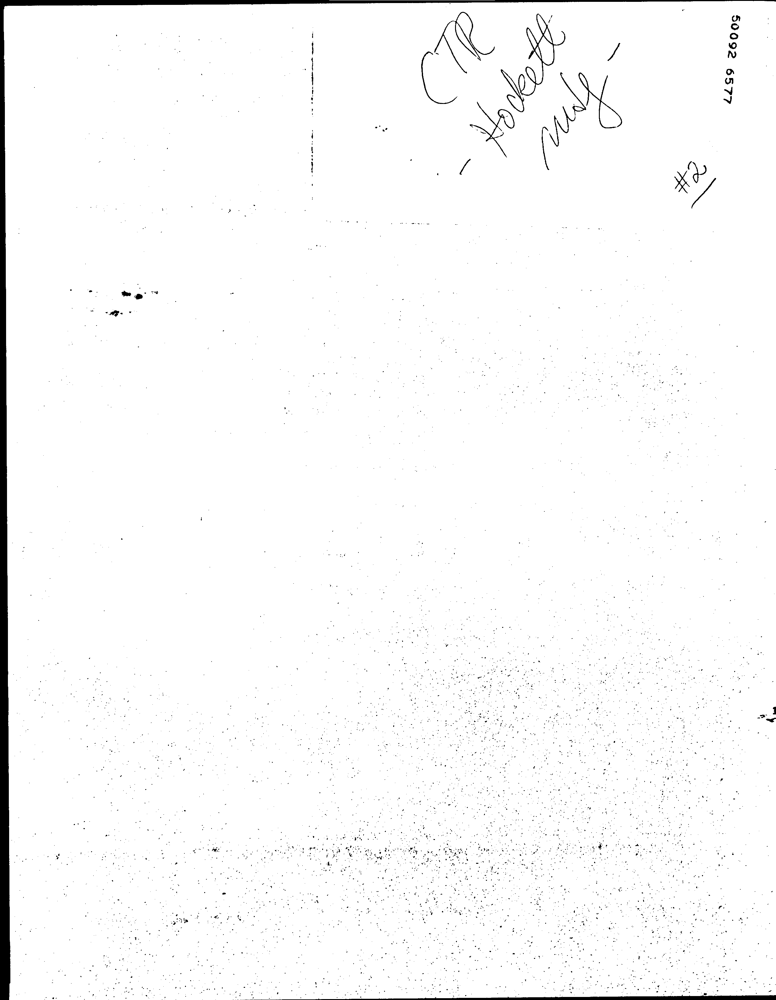 CTR
- Hockett
mtg -
#2
50092 6577